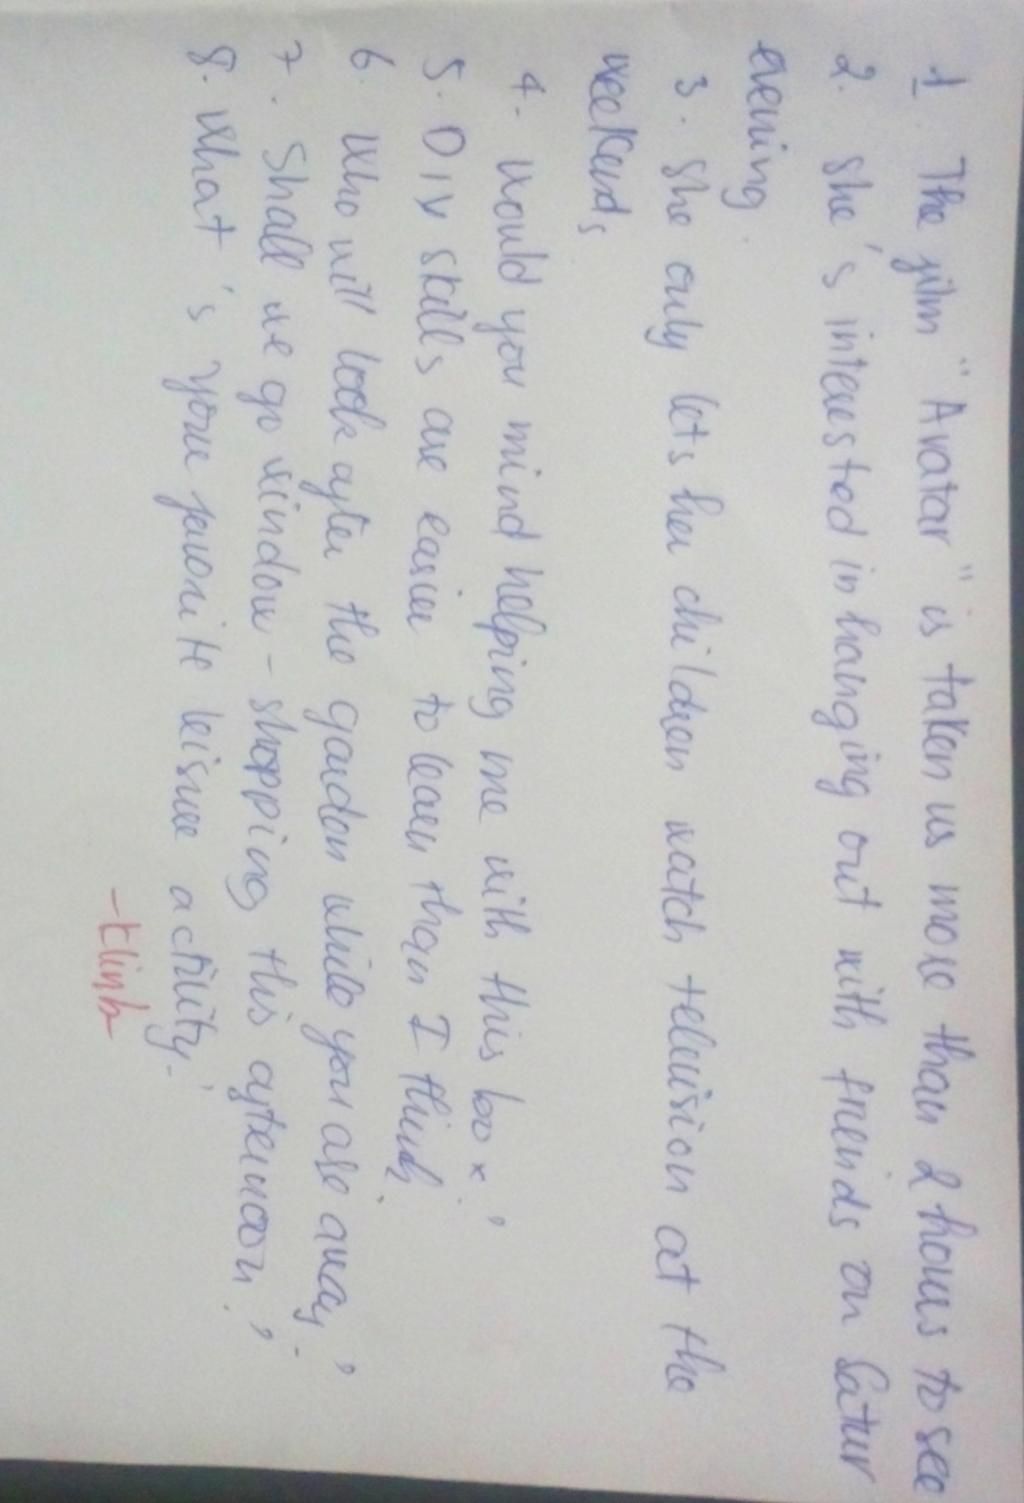 1. The film "Avatar" is taken us more than 2 hours to see
2. She's interested in hanging out with friends on Satur
evening.
3. She only lets her children watch television at the
weekends
4. Would you mind helping me with this box?
5. DIY skills are easier to learn than I think.
6. Who will look after the garden while you are away?
7. Shall we go window-shopping this afternoon?
8. What's your favorite leisure activity?